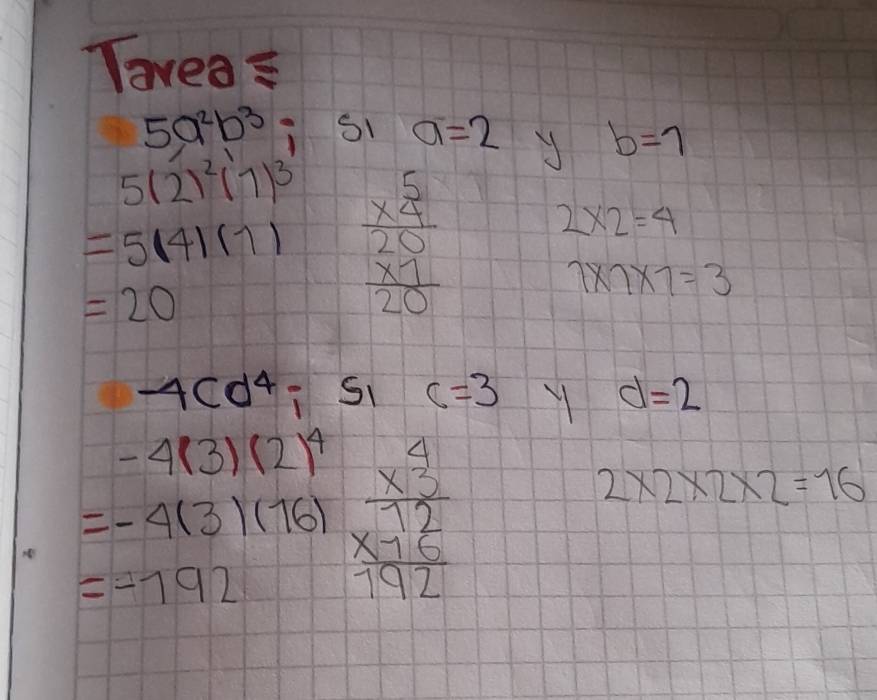 Tarea
5a²b³; si a=2 y b=1
5(2)²(1)³
= 5(4)(1)
= 20
5
x4
20
x1
20
2x2=4
1x1x1=3
-4cd⁴; si c=3 y d=2
-4(3)(2)⁴
=-4(3)(16)
=-192
4
x3
12
x16
192
2x2x2x2=16